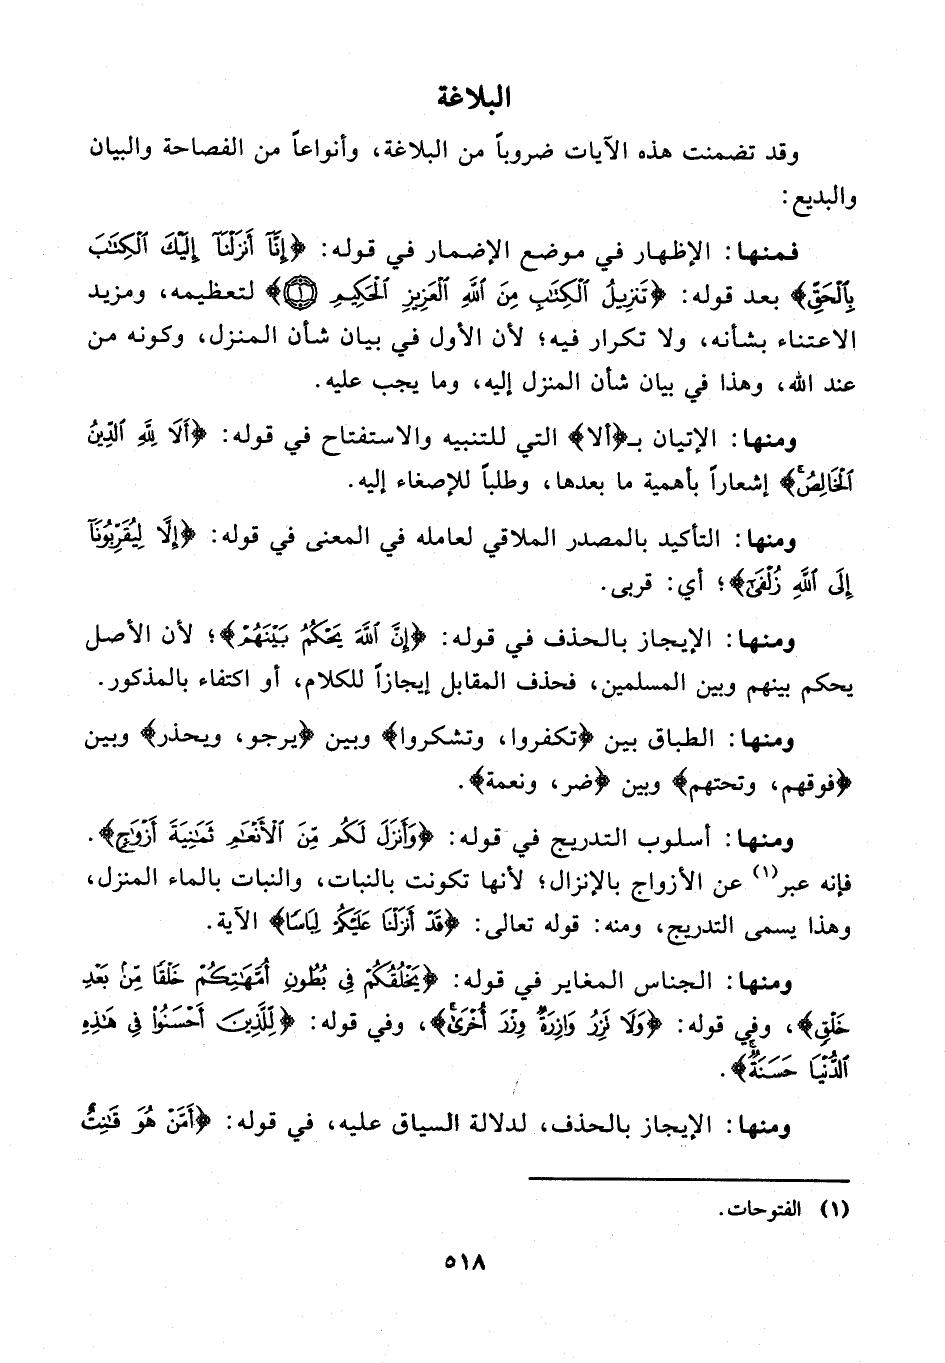 البلاغة
وقد تضمنت هذه الآيات ضروباً من البلاغة، وأنواعاً من الفصاحة والبيان
والبديع:
فمنها: الإظهار في موضع الإضمار في قوله: ﴿إِنَّآ أَنزَلْنَآ إِلَيْكَ ٱلْكِتَٰبَ
بِٱلْحَقِّ﴾ بعد قوله: ﴿تَنزِيلُ ٱلْكِتَٰبِ مِنَ ٱللَّهِ ٱلْعَزِيزِ ٱلْحَكِيمِ ۝١﴾ لتعظيمه، ومزيد
الاعتناء بشأنه، ولا تكرار فيه؛ لأن الأول في بيان شأن المنزل، وكونه من
عند الله، وهذا في بيان شأن المنزل إليه، وما يجب عليه.
ومنها: الإتيان بـ﴿ألا﴾ التي للتنبيه والاستفتاح في قوله: ﴿أَلَا لِلَّهِ ٱلدِّينُ
ٱلْخَالِصُۚ﴾ إشعاراً بأهمية ما بعدها، وطلباً للإصغاء إليه.
ومنها: التأكيد بالمصدر الملاقي لعامله في المعنى في قوله: ﴿إِلَّا لِيُقَرِّبُونَآ
إِلَى ٱللَّهِ زُلْفَىٰٓ﴾؛ أي: قربى.
ومنها: الإيجاز بالحذف في قوله: ﴿إِنَّ ٱللَّهَ يَحْكُمُ بَيْنَهُمْ﴾؛ لأن الأصل
يحكم بينهم وبين المسلمين، فحذف المقابل إيجازاً للكلام، أو اكتفاء بالمذكور.
ومنها: الطباق بين ﴿تكفروا، وتشكروا﴾ وبين ﴿يرجو، ويحذر﴾ وبين
﴿فوقهم، وتحتهم﴾ وبين ﴿ضر، ونعمة﴾.
ومنها: أسلوب التدريج في قوله: ﴿وَأَنزَلَ لَكُم مِّنَ ٱلْأَنْعَٰمِ ثَمَٰنِيَةَ أَزْوَٰجٍ﴾.
فإنه عبر(١) عن الأزواج بالإنزال؛ لأنها تكونت بالنبات، والنبات بالماء المنزل،
وهذا يسمى التدريج، ومنه: قوله تعالى: ﴿قَدْ أَنزَلْنَا عَلَيْكُمْ لِبَاسًا﴾ الآية.
ومنها: الجناس المغاير في قوله: ﴿يَخْلُقُكُمْ فِى بُطُونِ أُمَّهَٰتِكُمْ خَلْقًا مِّنۢ بَعْدِ
خَلْقٍ﴾، وفي قوله: ﴿وَلَا تَزِرُ وَازِرَةٌ وِزْرَ أُخْرَىٰۚ﴾، وفي قوله: ﴿لِلَّذِينَ أَحْسَنُوا۟ فِى هَٰذِهِ
ٱلدُّنْيَا حَسَنَةٌۗ﴾.
ومنها: الإيجاز بالحذف، لدلالة السياق عليه، في قوله: ﴿أَمَّنْ هُوَ قَٰنِتٌ
(١) الفتوحات.
٥١٨